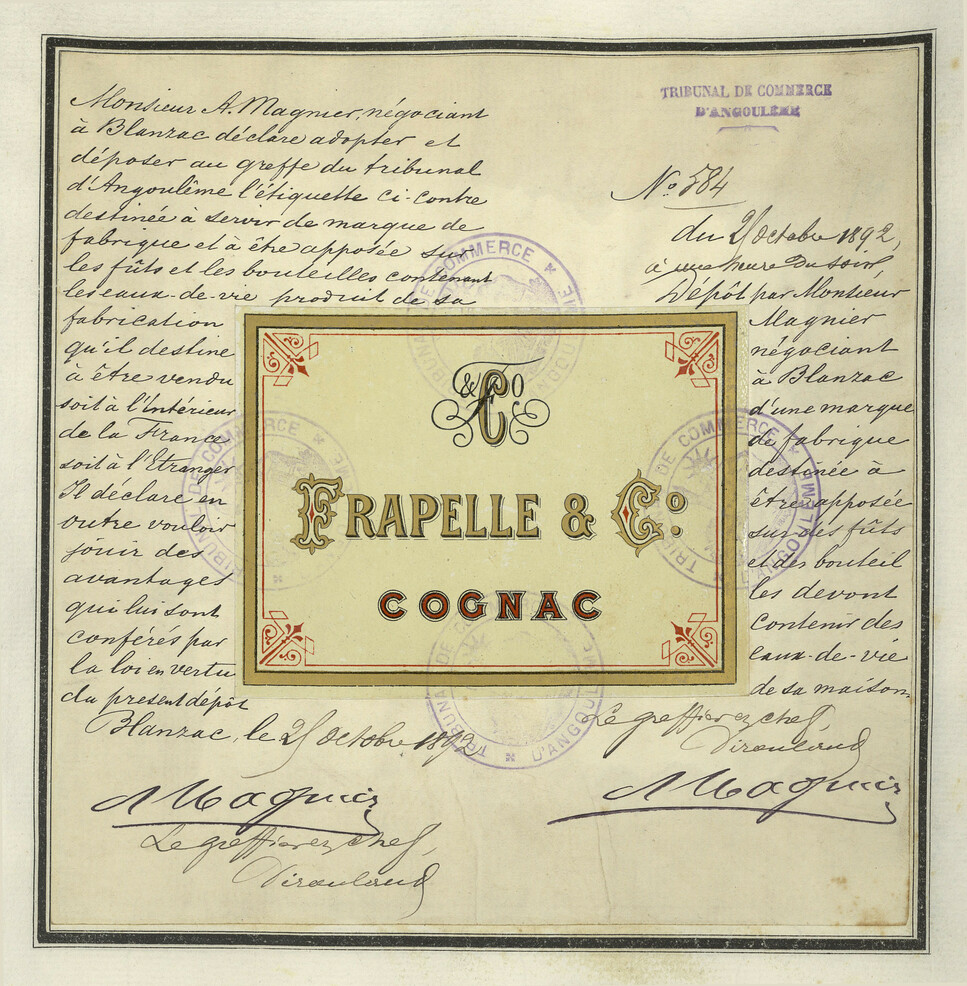 Monsieur A. Magnier, négociant
à Blanzac déclare adopter et
déposer au greffe du tribunal
d'Angoulême l'étiquette ci-contre
destinée à servir de marque de
fabrique et à être apposée sur
les fûts et les bouteilles contenant
les eaux-de-vie produit de sa
fabrication
qu'il destine
à être vendu
soit à l'Intérieur
de la France
soit à l'Etranger
Il déclare en
outre vouloir
jouir des
avantages
qui lui sont
conférés par
la loi en vertu
du présent dépôt
Blanzac, le 25 Octobre 1892
A Magnier
Le greffier en chef,
TRIBUNAL DE COMMERCE
D'ANGOULÊME
N° 584
du 25 Octobre 1892,
à une heure du soir,
Dépôt par Monsieur
Magnier
négociant
à Blanzac
d'une marque
de fabrique
destinée à
être apposée
sur des fûts
et des bouteil
les devant
contenir des
eaux-de-vie
de sa maison
Le greffier en chef,
A Magnier
F & Co
FRAPELLE & Co
COGNAC
TRIBUNAL DE COMMERCE D'ANGOULÊME
TRIBUNAL DE COMMERCE D'ANGOULÊME
TRIBUNAL DE COMMERCE D'ANGOULÊME
TRIBUNAL DE COMMERCE D'ANGOULÊME